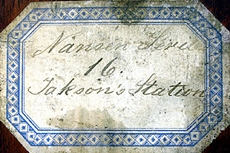 Nansen Seri
16.
Jakson's Station